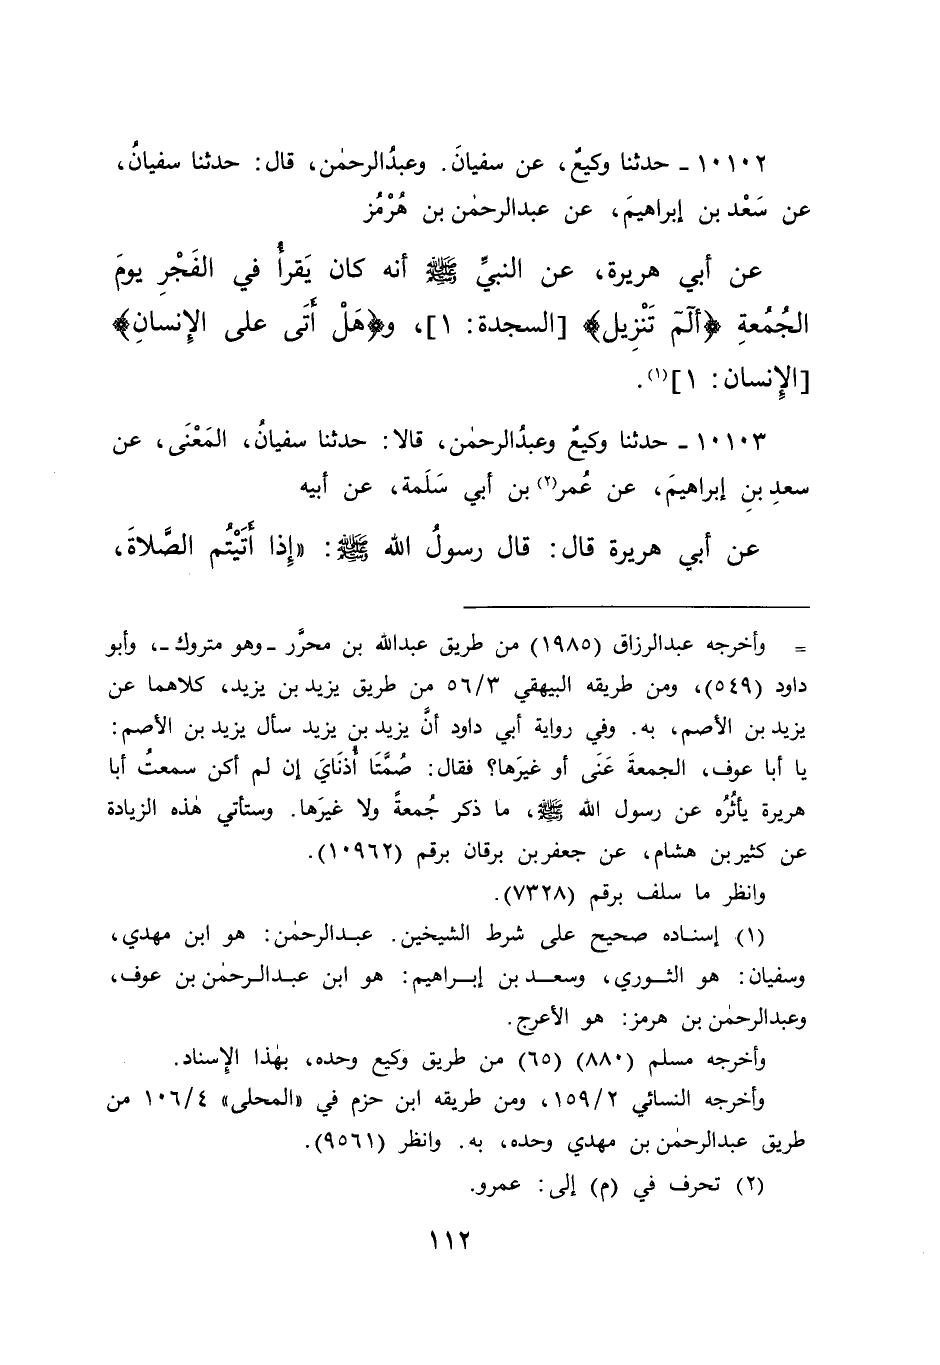 ١٠١٠٢ - حدثنا وكيعٌ، عن سفيانَ. وعبدُالرحمٰن، قال: حدثنا سفيانُ،
عن سَعْد بن إبراهيمَ، عن عبدالرحمٰن بن هُرْمُز
عن أبي هريرة، عن النبيِّ ﷺ أنه كان يَقرأُ في الفَجْرِ يومَ
الجُمُعةِ ﴿ألٓمٓ تَنْزِيل﴾ [السجدة: ١]، و﴿هَلْ أَتَى على الإِنسانِ﴾
[الإِنسان: ١](١).
١٠١٠٣ - حدثنا وكيعٌ وعبدُالرحمٰن، قالا: حدثنا سفيانُ، المَعْنَى، عن
سعدِ بنِ إبراهيمَ، عن عُمر(٢) بن أبي سَلَمة، عن أبيه
عن أبي هريرة قال: قال رسولُ الله ﷺ: «إِذا أَتَيْتُم الصَّلاةَ،
= وأخرجه عبدالرزاق (١٩٨٥) من طريق عبدالله بن محرَّر -وهو متروك-، وأبو
داود (٥٤٩)، ومن طريقه البيهقي ٥٦/٣ من طريق يزيد بن يزيد، كلاهما عن
يزيد بن الأصم، به. وفي رواية أبي داود أنَّ يزيد بن يزيد سأل يزيد بن الأصم:
يا أبا عوف، الجمعةَ عَنَى أو غيرَها؟ فقال: صُمَّتَا أُذنَايَ إن لم أكن سمعتُ أبا
هريرة يأثُرُه عن رسول الله ﷺ، ما ذكر جُمعةً ولا غيرَها. وستأتي هٰذه الزيادة
عن كثير بن هشام، عن جعفر بن برقان برقم (١٠٩٦٢).
وانظر ما سلف برقم (٧٣٢٨).
(١) إسناده صحيح على شرط الشيخين. عبدالرحمٰن: هو ابن مهدي،
وسفيان: هو الثوري، وسعد بن إبراهيم: هو ابن عبدالرحمٰن بن عوف،
وعبدالرحمٰن بن هرمز: هو الأعرج.
وأخرجه مسلم (٨٨٠) (٦٥) من طريق وكيع وحده، بهٰذا الإِسناد.
وأخرجه النسائي ١٥٩/٢، ومن طريقه ابن حزم في «المحلى» ١٠٦/٤ من
طريق عبدالرحمٰن بن مهدي وحده، به. وانظر (٩٥٦١).
(٢) تحرف في (م) إلى: عمرو.
١١٢